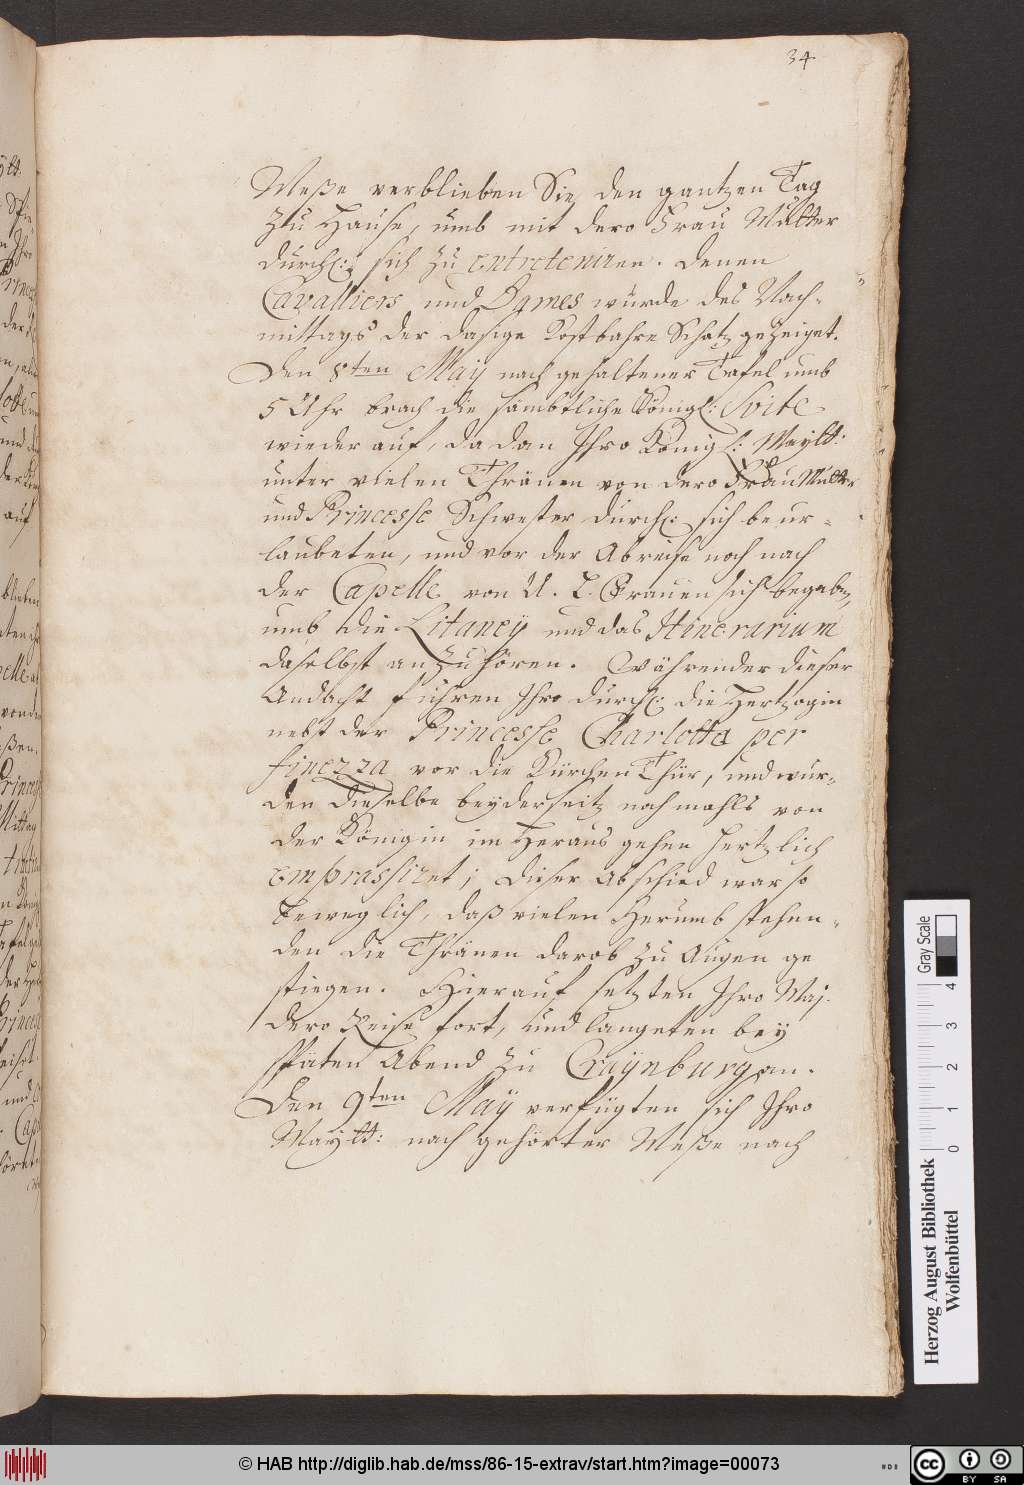 34
Meße verblieben Sie den gantzen Tag
zu Hause, umb mit dero Frau Mutter
durchl: sich zu entreteniren. Denen
Cavalliers und Dames wurde des Nach-
mittags der dasige kostbahre Schatz gezeiget.
Den 8ten May nach gehaltener Tafel umb
5 Uhr brach die sämbtliche Königl: Svite
wieder auf, da dan Ihro Königl: Maytt:
unter vielen Thränen von dero Frau Mutter
und Princesse Schwester durchl: sich beur-
laubeten, und vor der Abreise noch nach
der Capelle von U. L. Frauen sich begaben,
umb die Litaney und das Itinerarium
daselbst anzuhören. Währender dieser
Andacht fuhren Ihro durchl: die Hertzogin
nebst der Princesse Charlotta per
finezza vor die Kürchen Thür, und wur-
den dieselbe beyderseitz nochmahls von
der Königin im Herausgehen hertzlich
emprassiret; dieser Abschied war so
beweglich, daß vielen Herumb stehen-
den die Thränen darob zu Augen ge
stiegen. Hierauf setzten Ihro Maj.
dero Reise fort, und langeten bey
späten Abend zu Craynburg an.
Den 9ten May verfügten sich Ihro
Maytt: nach gehörter Meße nach
Gray Scale
0 1 2 3 4
Herzog August Bibliothek
Wolfenbüttel
© HAB http://diglib.hab.de/mss/86-15-extrav/start.htm?image=00073
cc BY SA